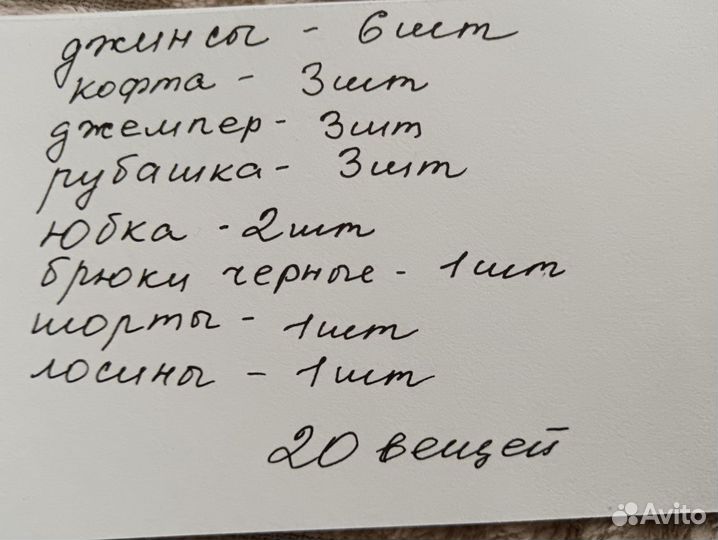 джинсы - 6шт
кофта - 3шт
джемпер - 3шт
рубашка - 3шт
юбка - 2шт
брюки черные - 1шт
шорты - 1шт
лосины - 1шт
20 вещей
Avito